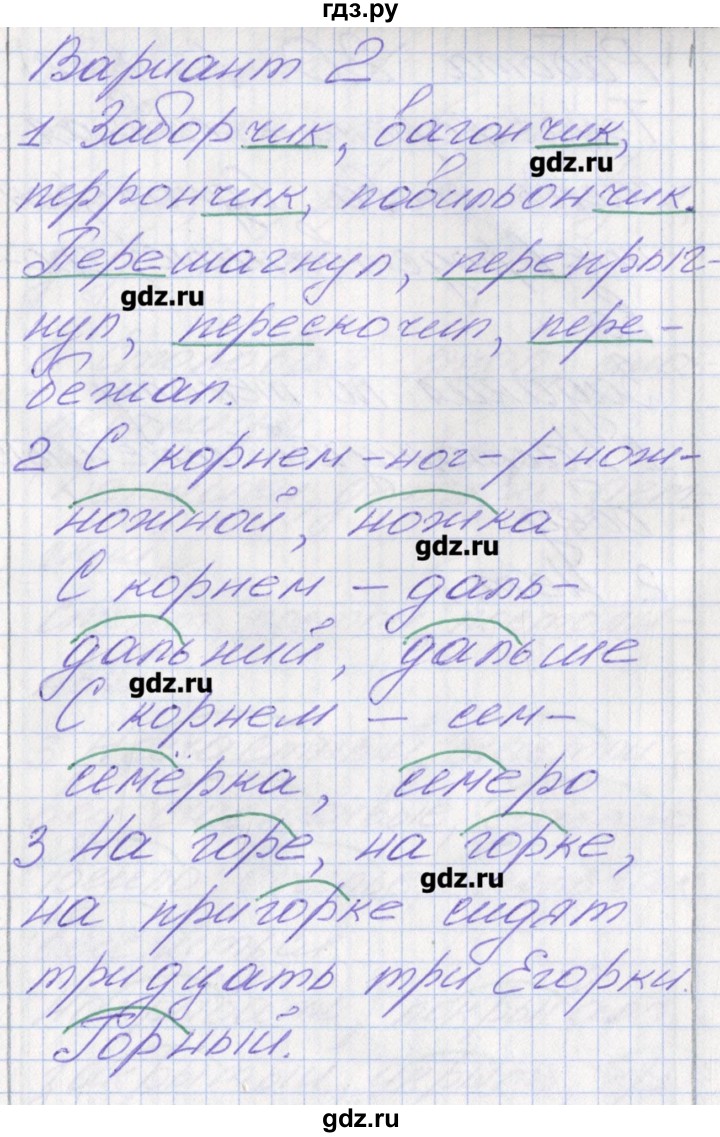 гдз.ру
Вариант 2
1 Заборчик, вагончик,
gdz.ru
перрончик, павильончик.
Перешагнул, перепрыг-
gdz.ru
нул, перескочил, пере-
бежал.
2 С корнем -ног-/-нож-
ножной, ножка
gdz.ru
С корнем - даль-
дальний, дальше
gdz.ru
С корнем - сем-
семёрка, семеро
3 На горе, на горке,
gdz.ru
на пригорке сидят
тридцать три Егорки.
Горный.
gdz.ru